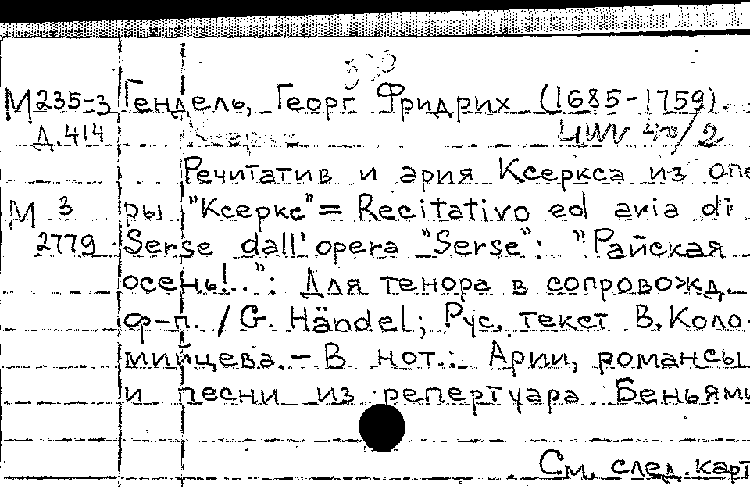 М235-3 Гендель, Георг Фридрих (1685-1759).
Д.414 Ксеркс
Речитатив и ария Ксеркса из опе
М 3 ры "Ксеркс" = Recitativo ed aria di
2779 Serse dall'opera "Serse": "Райская
осень!..": Для тенора в сопровожд.
ф-п. / G. Händel; Рус. текст В. Коло-
мийцева. - В нот.: Арии, романсы
и песни из репертуара Беньями
См. след. карт